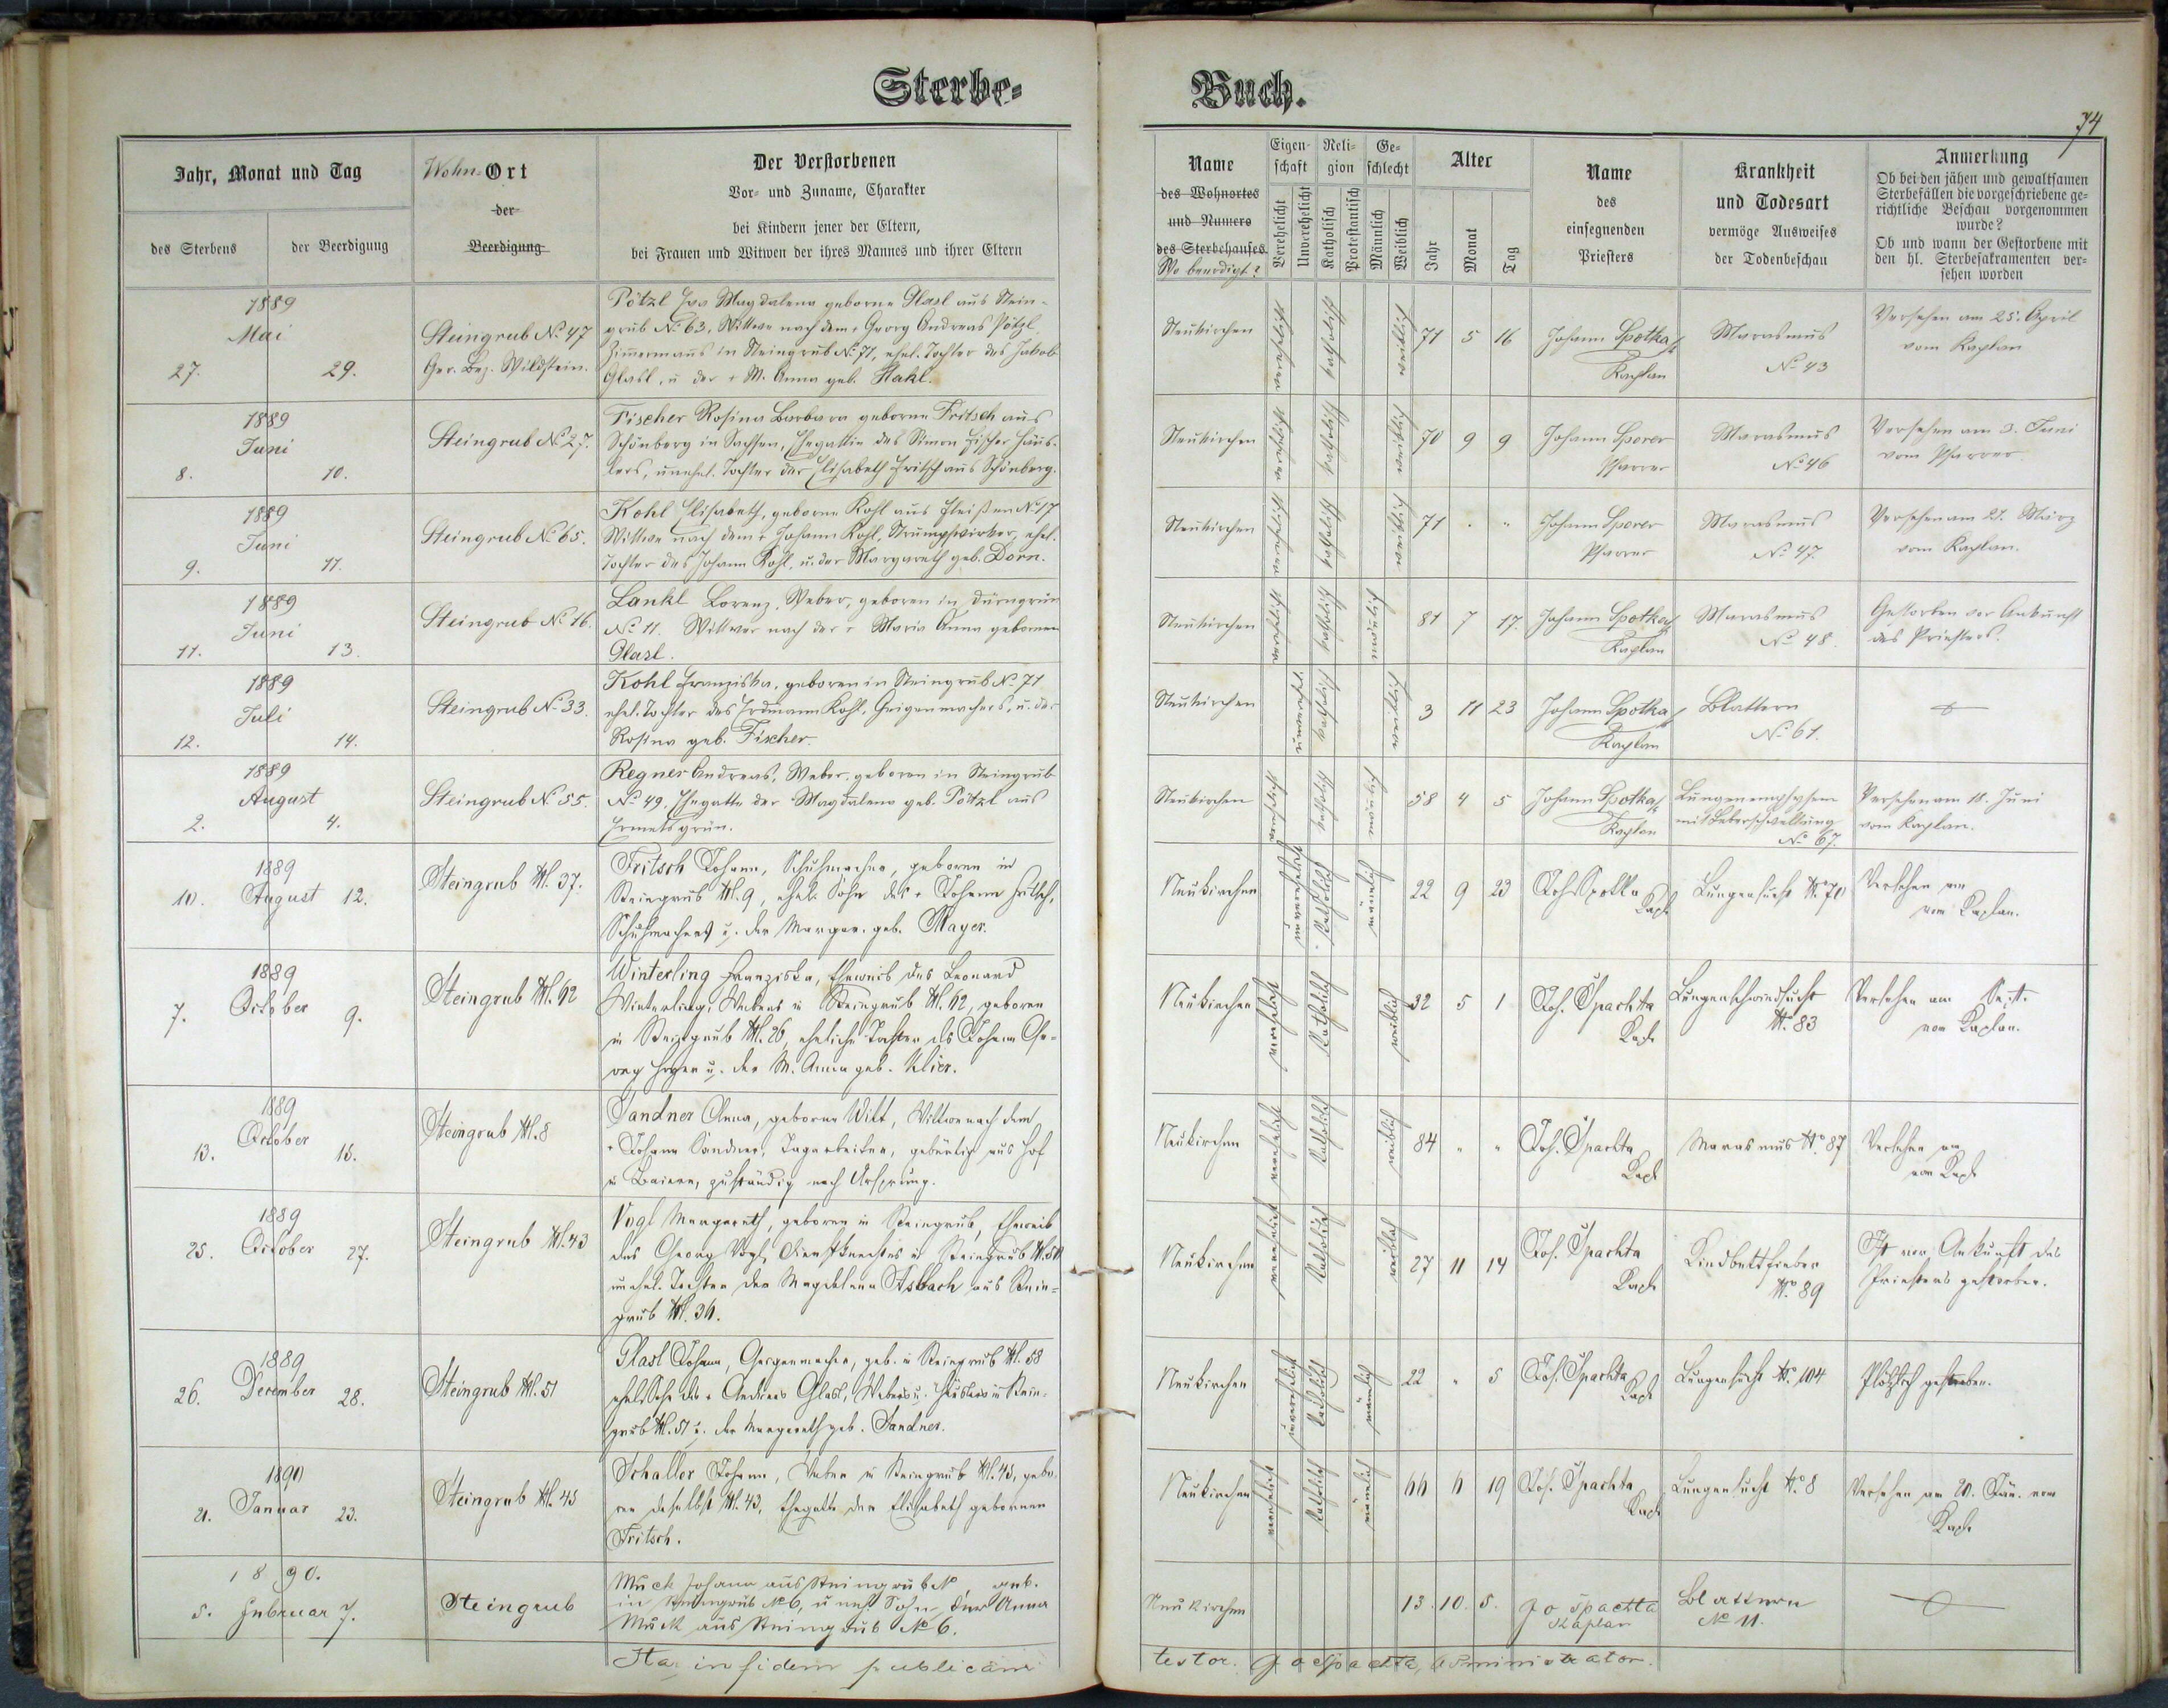 Sterbe-
Jahr, Monat und Tag
des Sterbens
der Beerdigung
Wohn-Ort
der
Beerdigung
Der Verstorbenen
Vor- und Zuname, Charakter
bei Kindern jener der Eltern,
bei Frauen und Witwen der ihres Mannes und ihrer Eltern
1889
Mai
27. 29.
Steingrub No. 47
Ger. Bez. Wildstein.
Pötzl Eva Magdalena geborne Glasl aus Stein-
grub No. 63, Wittwe nach dem + Georg Andreas Pötzl,
Zimermans in Steingrub No. 71, ehel. Tochter des Jakob
Glasl, u. der + M. Anna geb. Hakl.
1889
Juni
8. 10.
Steingrub No. 27.
Fischer Rosina Barbara geborne Fritsch aus
Schönberg in Sachsen, Ehegattin des Simon Fischer Häus-
lers, unehel. Tochter der Elisabeth Fritsch aus Schönberg.
1889
Juni
9. 11.
Steingrub No. 65.
Kohl Elisabeth, geborne Kohl aus Fleißen No. 17
Wittwe nach dem + Johann Kohl, Strumpfwirker, ehel.
Tochter des Johann Kohl, u. der Margareth geb. Dorn.
1889
Juni
11. 13.
Steingrub No. 16.
Lankl Lorenz, Weber, geboren in Dürngrün
No. 11. Wittwer nach der + Maria Anna gebornen
Glasl.
1889
Juli
12. 14.
Steingrub No. 33.
Kohl Franziska, geboren in Steingrub No. 71
ehel. Tochter des Erdmann Kohl, Geigenmachers, u. der
Rosina geb. Fischer.
1889
August
2. 4.
Steingrub No. 55.
Regner Andreas, Weber, geboren in Steingrub
No. 49. Ehegatte der Magdalena geb. Pötzl aus
Ermetsgrün.
1889
10. August 12.
Steingrub N. 37.
Fritsch Johann, Schuhmacher, geboren in
Steingrub N. 9, ehel. Sohn des + Johann Fritsch,
Schuhmachers u. der Margar. geb. Mayer.
1889
7. October 9.
Steingrub N. 62
Winterling Franziska, Eheweib des Leonard
Winterling, Webers in Steingrub N. 62, geboren
in Steingrub N. 26, eheliche Tochter des Johann Ge-
org u. der M. Anna geb. Klier.
1889
13. October 15.
Steingrub N. 8
Sandner Anna, geborne Witt, Wittwe nach dem
+ Johann Sandner, Tagarbeiter, gebürtig aus Hof
in Baiern, zuständig nach Ursprung.
1889
25. October 27.
Steingrub N. 43
Vogl Margareth, geboren in Steingrub, Eheweib
des Georg Vogl, Dienstknechtes in Steingrub
unehel. Tochter der Magdalena Asbach aus Stein-
grub N. 36.
1889
26. December 28.
Steingrub N. 51
Glasl Johann, Geigenmacher, geb. in Steingrub N. 58
ehel. Sohn des + Andreas Glasl, Webers u. Häuslers in Stein-
grub N. 51 u. der Margareth geb. Sandner.
1890
21. Januar 23.
Steingrub N. 45
Schaller Johann, Weber in Steingrub N. 45, gebo-
ren daselbst N. 43, Ehegatte der Elisabeth gebornen
Fritsch.
1890.
5. Februar 7.
Steingrub
Muck Johann aus Steingrub No , geb.
in Steingrub No 6, unehl. Sohn der Anna
Muck aus Steingrub No 6.
Ita in fidem publicam
Buch.
74
Name
des Wohnortes
und Numero
des Sterbehauses
Wo beerdigt?
Eigen-
schaft
Verehelicht
Unverehelicht
Reli-
gion
Katholisch
Protestantisch
Ge-
schlecht
Männlich
Weiblich
Alter
Jahr
Monat
Tag
Name
des
einsegnenden
Priesters
Krankheit
und Todesart
vermöge Ausweises
der Todenbeschau
Anmerkung
Ob bei den jähen und gewaltsamen
Sterbefällen die vorgeschriebene ge-
richtliche Beschau vorgenommen
wurde?
Ob und wann der Gestorbene mit
den hl. Sterbesakramenten ver-
sehen worden
Neukirchen verehelicht katholisch weiblich 71 5 16
Johann Spotka
Kaplan
Marasmus
No. 43
Versehen am 25. April
vom Kaplan
Neukirchen verehelicht katholisch weiblich 70 9 9
Johann Sporer
Pfarrer
Marasmus
No. 46
Versehen am 3. Juni
vom Pfarrer
Neukirchen verehelicht katholisch weiblich 71 . "
Johann Sporer
Pfarrer
Marasmus
No. 47.
Versehen am 21. März
vom Kaplan.
Neukirchen verehelicht katholisch männlich 81 7 17.
Johann Spotka
Kaplan
Marasmus
No. 48.
Gestorben vor Ankunft
des Priesters.
Neukirchen unverehel. katholisch weiblich 3 11 23
Johann Spotka
Kaplan
Blattern
No. 61.
Neukirchen verehelicht katholisch männlich 58 4 5
Johann Spotka
Kaplan
Lungenemphysem
mit Leberschwellung
No. 67.
Versehen am 18. Juni
vom Kaplan.
Neukirchen unverehelicht katholisch männlich 22 9 23
Joh. Spotka
Kapl
Lungensucht No. 70
Versehen am
vom Kaplan.
Neukirchen verehelicht katholisch weiblich 32 5 1
Jos. Spachta
Kapl.
Lungenschwindsucht
No. 83
Versehen am Sept.
vom Kaplan.
Neukirchen verehelicht katholisch weiblich 84 " "
Jos. Spachta
Kapl
Marasmus No. 87
Versehen am
vom Kapl
Neukirchen verehelicht katholisch weiblich 27 11 14
Jos. Spachta
Kapl
Kindbettfieber
No. 89
Ist vor Ankunft des
Priesters gestorben.
Neukirchen unverehelicht katholisch männlich 22 " 5
Jos. Spachta
Kapl
Lungensucht No. 104
Plötzlich gestorben.
Neukirchen verehelicht katholisch männlich 66 6 19
Jos. Spachta
Kapl
Lungensucht No. 8
Versehen am 20. Jän. vom
Kapl.
Neukirchen 13. 10. 5.
Jo Spachta
Kaplan
Blattern
No 11.
testor. Jo Spachta, administrator.